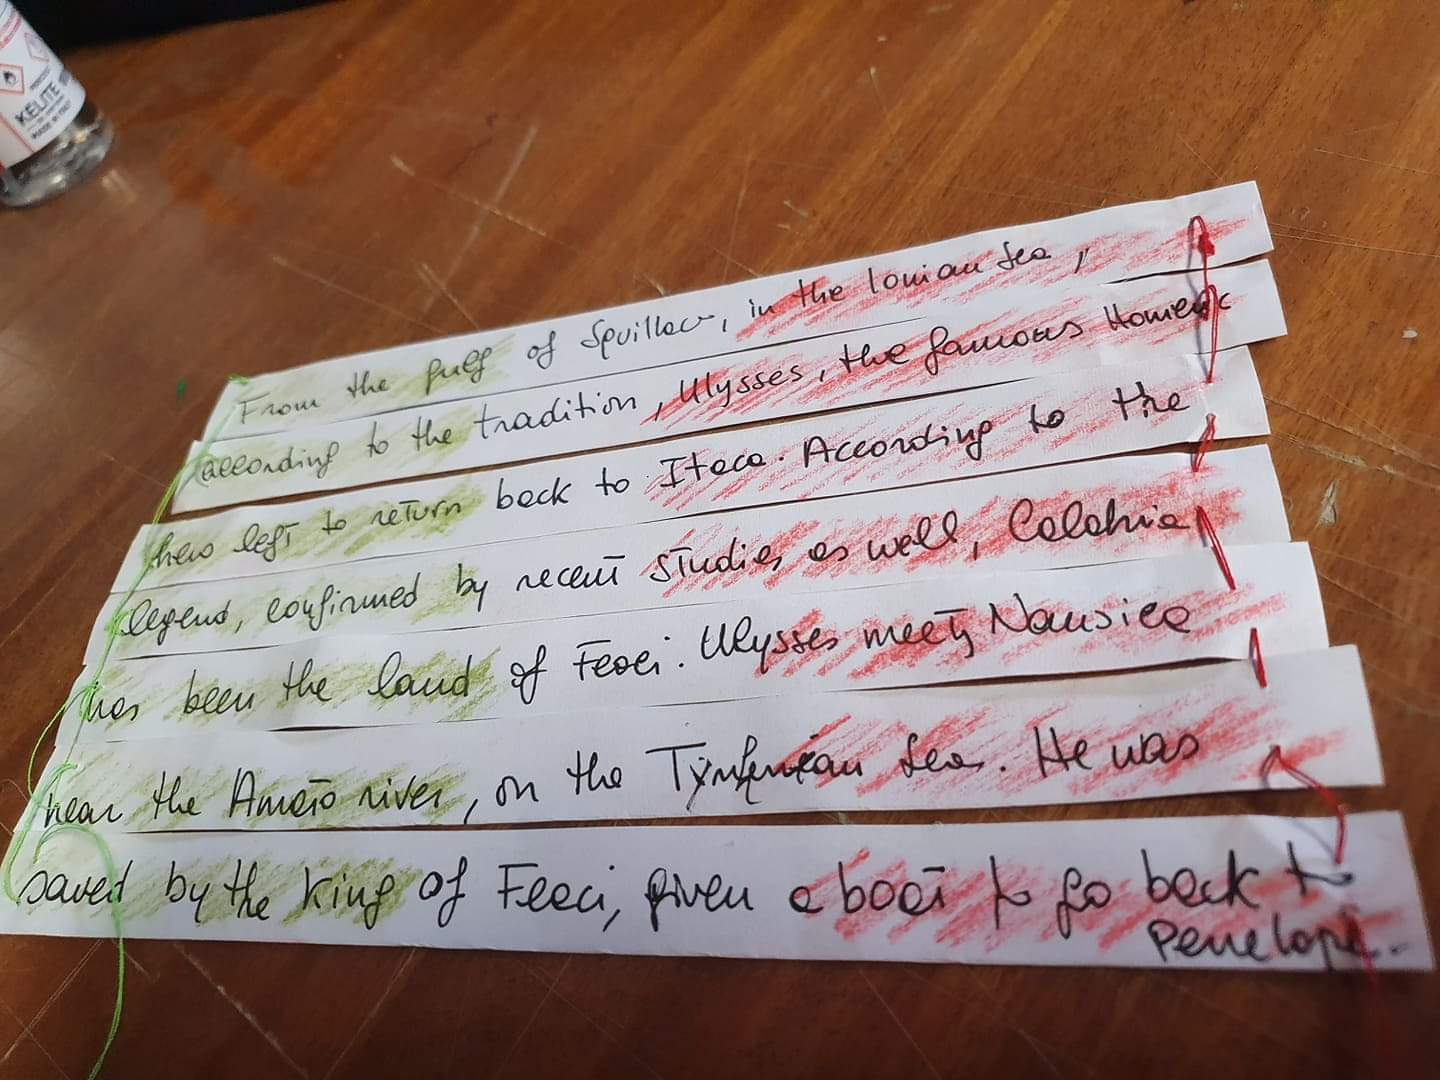 KELITE
MADE IN ITALY
From the gulf of Squillace, in the Ionian Sea,
according to the tradition, Ulysses, the famous Homeric
hero left to return back to Itaca. According to the
legend, confirmed by recent studies as well, Calabria
has been the land of Feaci. Ulysses meets Nausica
near the Amato river, on the Tyrrhenian Sea. He was
saved by the King of Feaci, given a boat to go back to
Penelope.